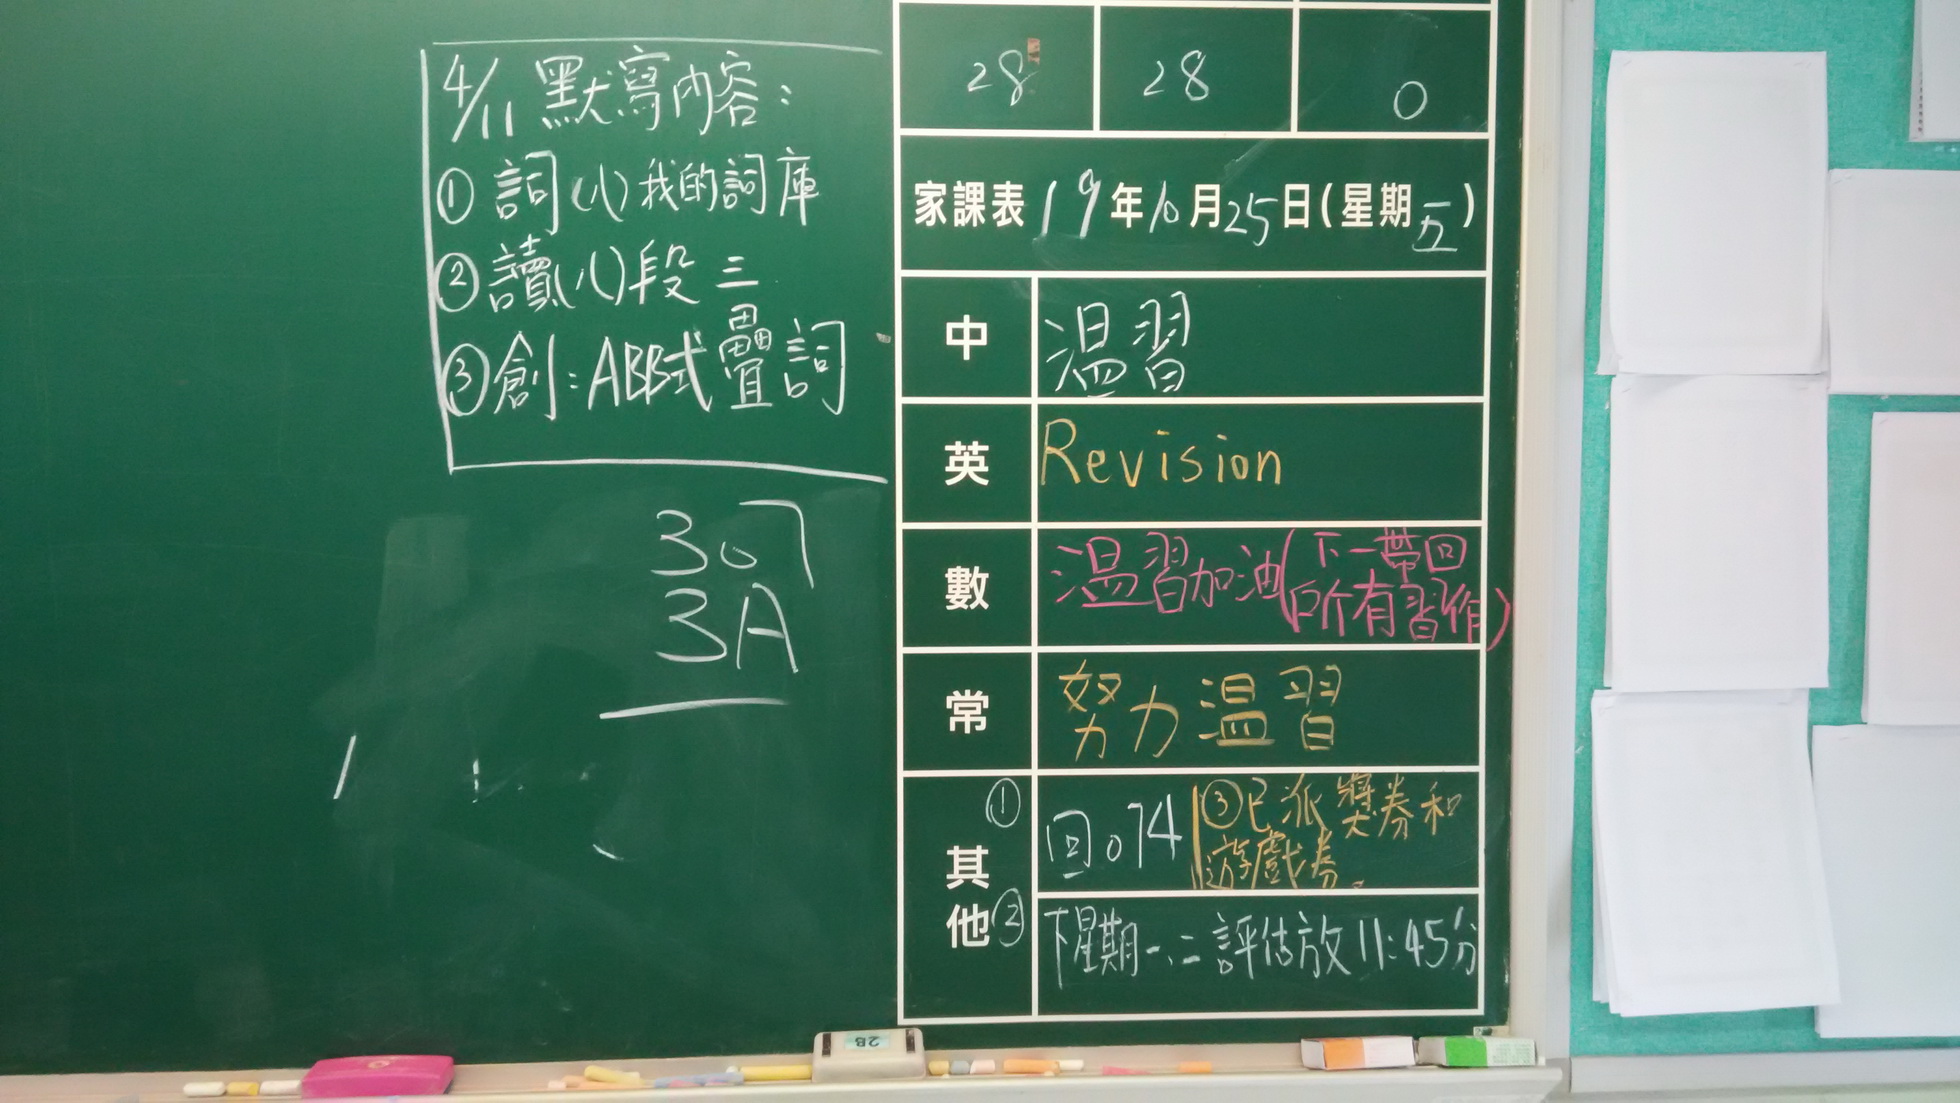 4/11 默寫內容：
① 詞(八)我的詞庫
② 讀(八)段三
③ 創：ABB式疊詞
307
3A
28 28 0
家課表 19年10月25日(星期五)
中 温習
英 Revision
數 温習加油(下一帶回所有習作)
常 努力温習
其他
① 回074
③已派獎券和
遊戲券。
② 下星期一、二評估放11:45分
2B